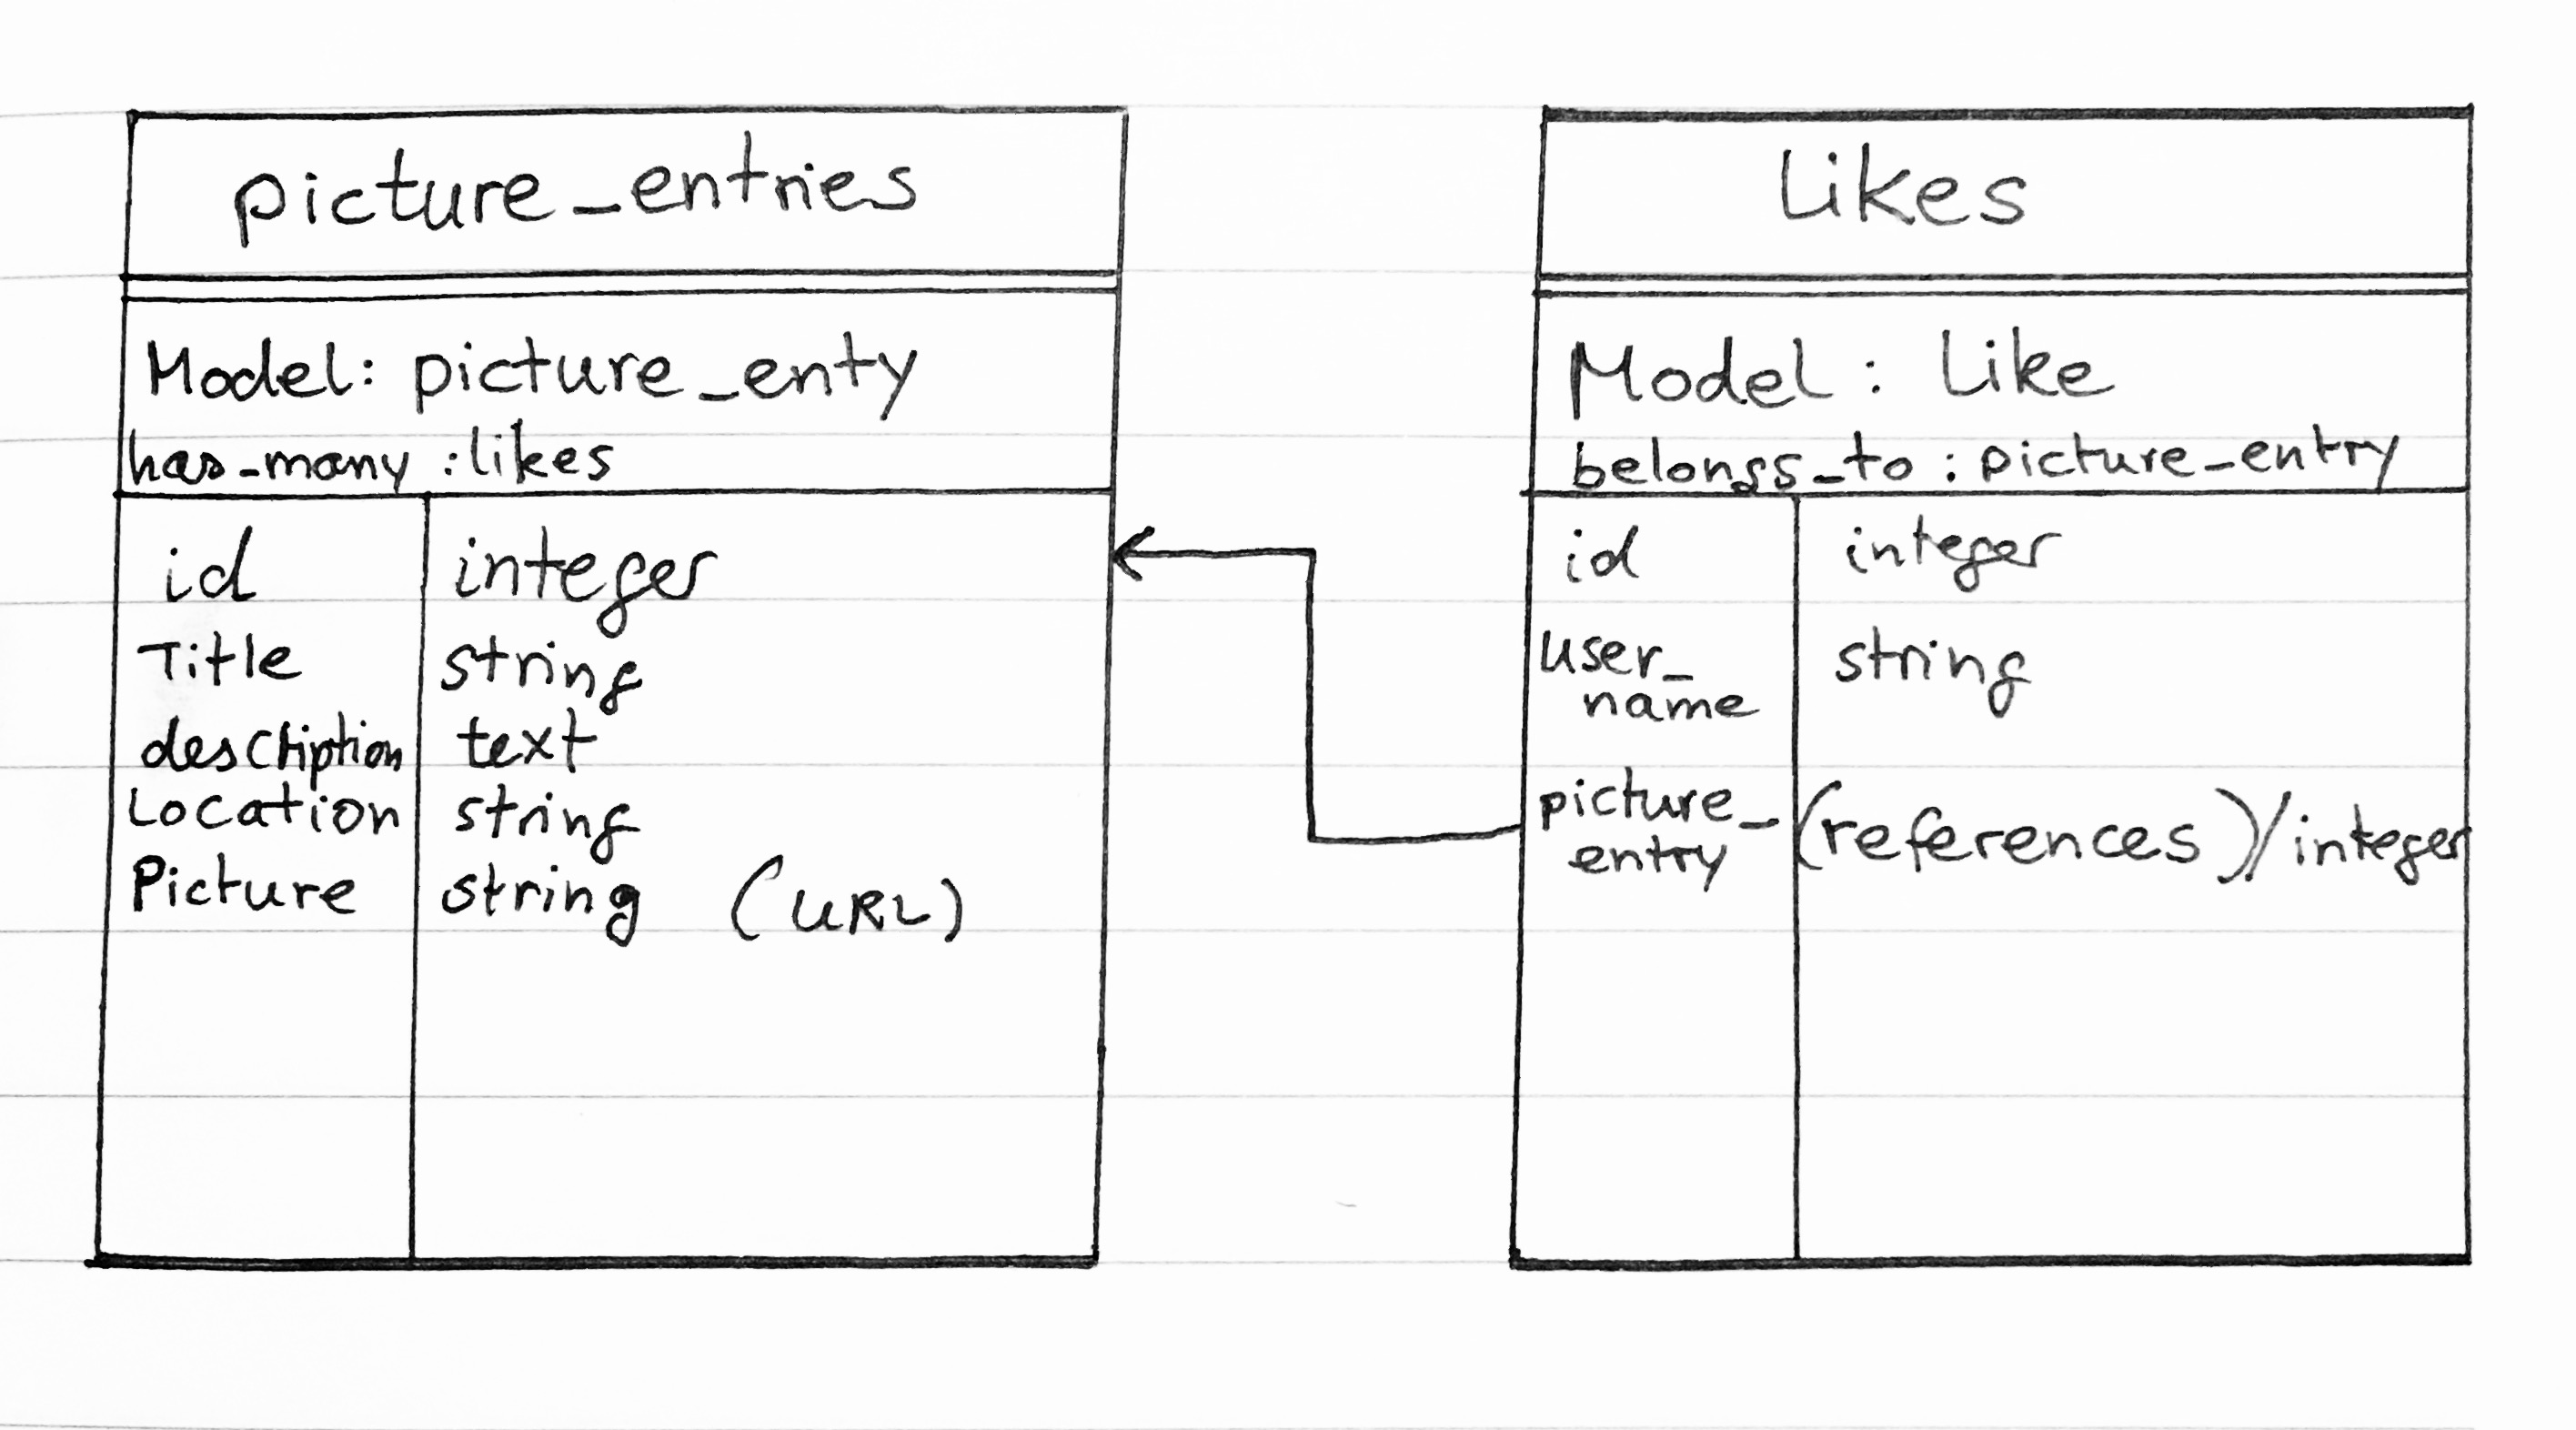 picture_entries
Model: picture_enty
has_many :likes
id integer
Title string
description text
Location string
Picture string (URL)
Likes
Model: Like
belongs_to : picture_entry
id integer
user_ string
name
picture_ (references)/integer
entry